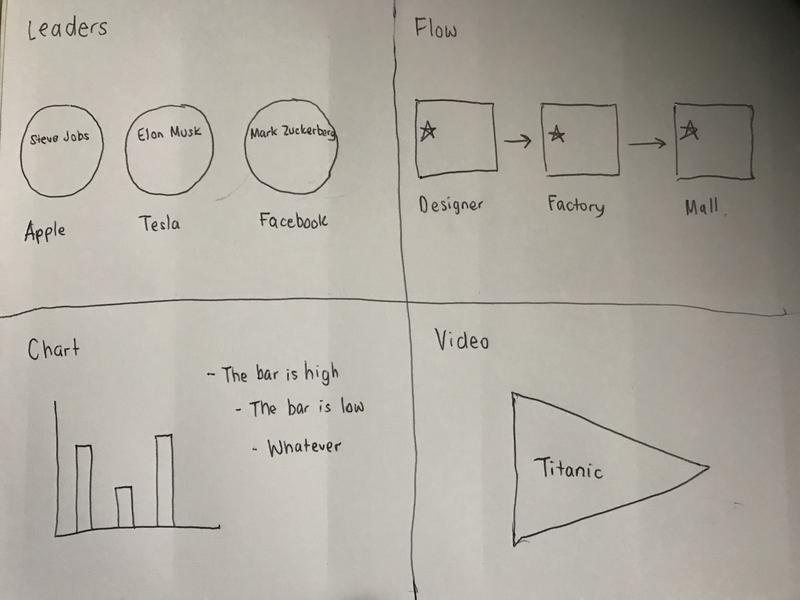 Leaders
Steve Jobs
Elon Musk
Mark Zuckerberg
Apple
Tesla
Facebook
Flow
Designer
Factory
Mall
Chart
- The bar is high
- The bar is low
- Whatever
Video
Titanic